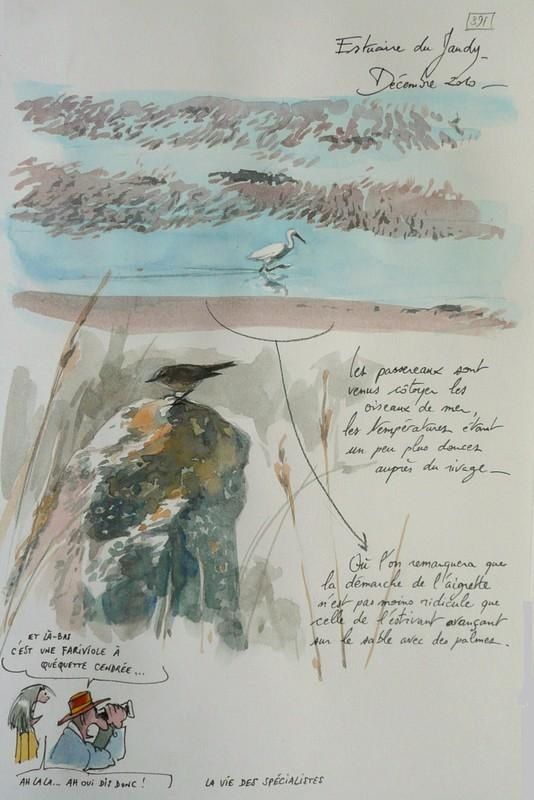 391
Estuaire du Jaudy
Décembre 2010
Les passereaux sont
venus côtoyer les
oiseaux de mer,
les températures étant
un peu plus douces
auprès du rivage
Où l'on remarquera que
la démarche de l'aigrette
n'est pas moins ridicule que
celle de l'estivant avançant
sur le sable avec des palmes.
ET LÀ-BAS
C'EST UNE FARIVIOLE À
QUÉQUETTE CENDRÉE...
AH LA LA... AH OUI DIS DONC !
LA VIE DES SPÉCIALISTES